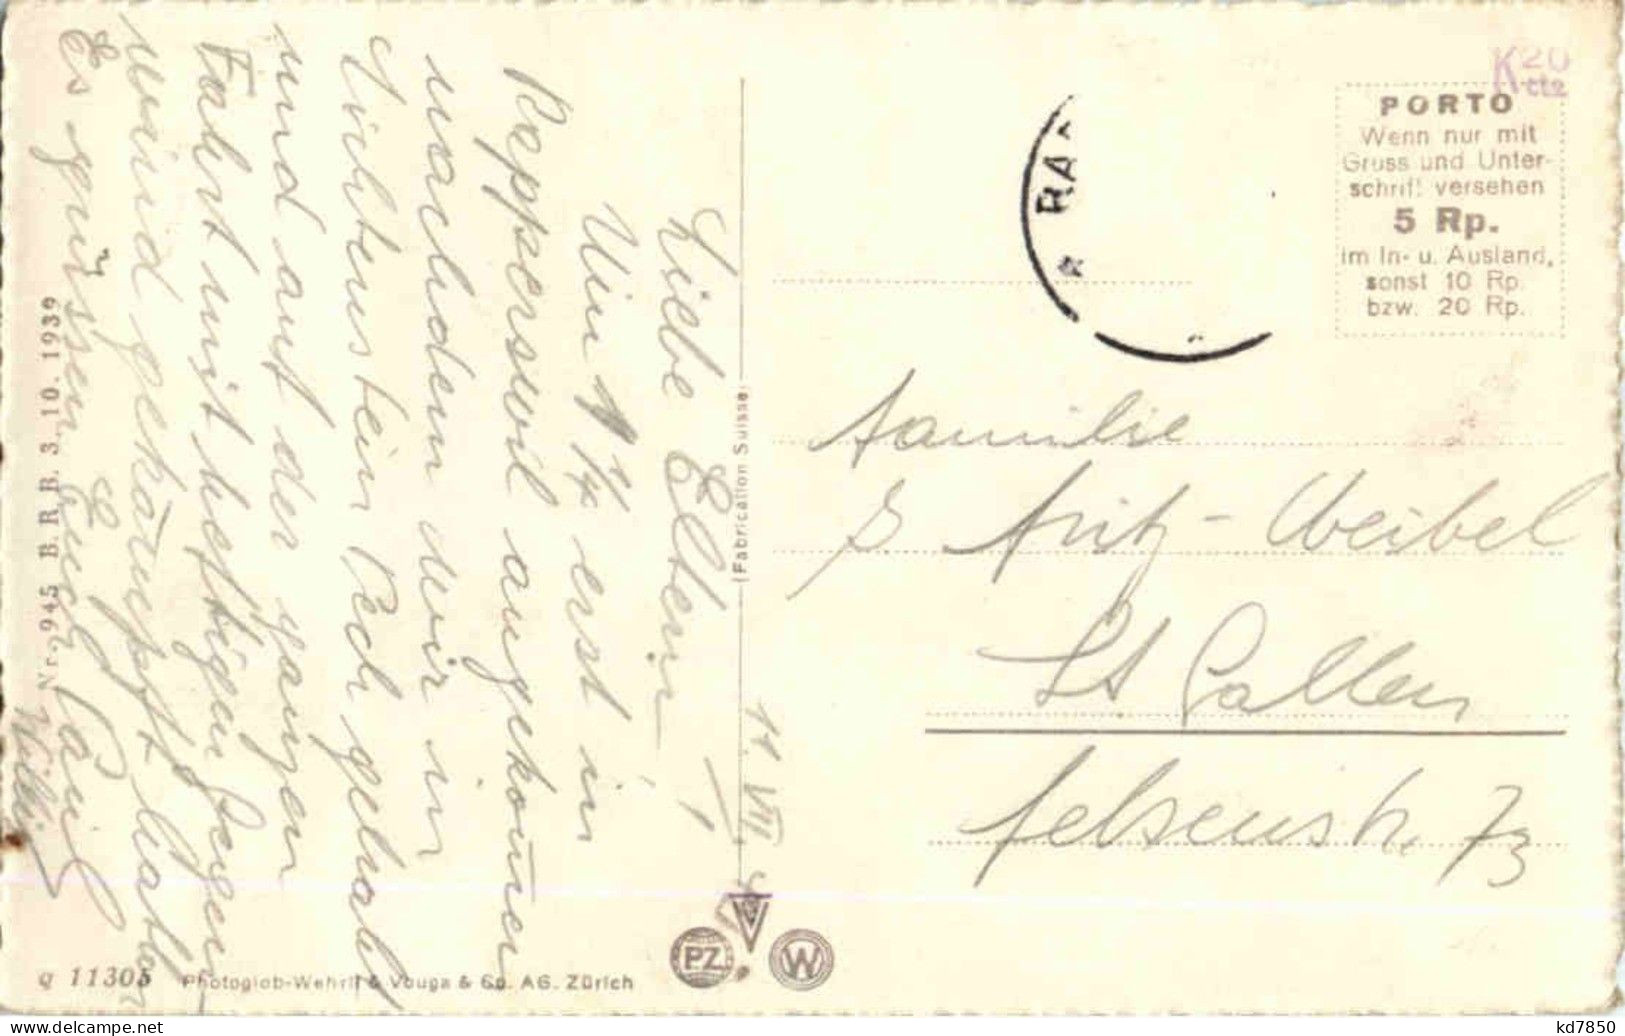 Liebe Eltern!
Um 1 1/4 erst in
Rapperswil angekom̄en
nachdem wir in
Lichtenstein Pech gehabt
und auf der ganzen
Fahrt mit heftigen Regen
und gekämpft hatten
Es grüssen Euch Paul
Willi
Nr. 945 B. R. B. 3. 10. 1939
q 11305 Photoglob-Wehrli & Vouga & Co. AG. Zürich
(Fabrication Suisse)
11 VII
PZ V W
RA
K 20
cts
PORTO
Wenn nur mit
Gruss und Unter-
schrift versehen
5 Rp.
im In- u. Ausland,
sonst 10 Rp.
bzw. 20 Rp.
Familie
Fritz-Weibel
St Gallen
Felsenstr. 73
kd7850